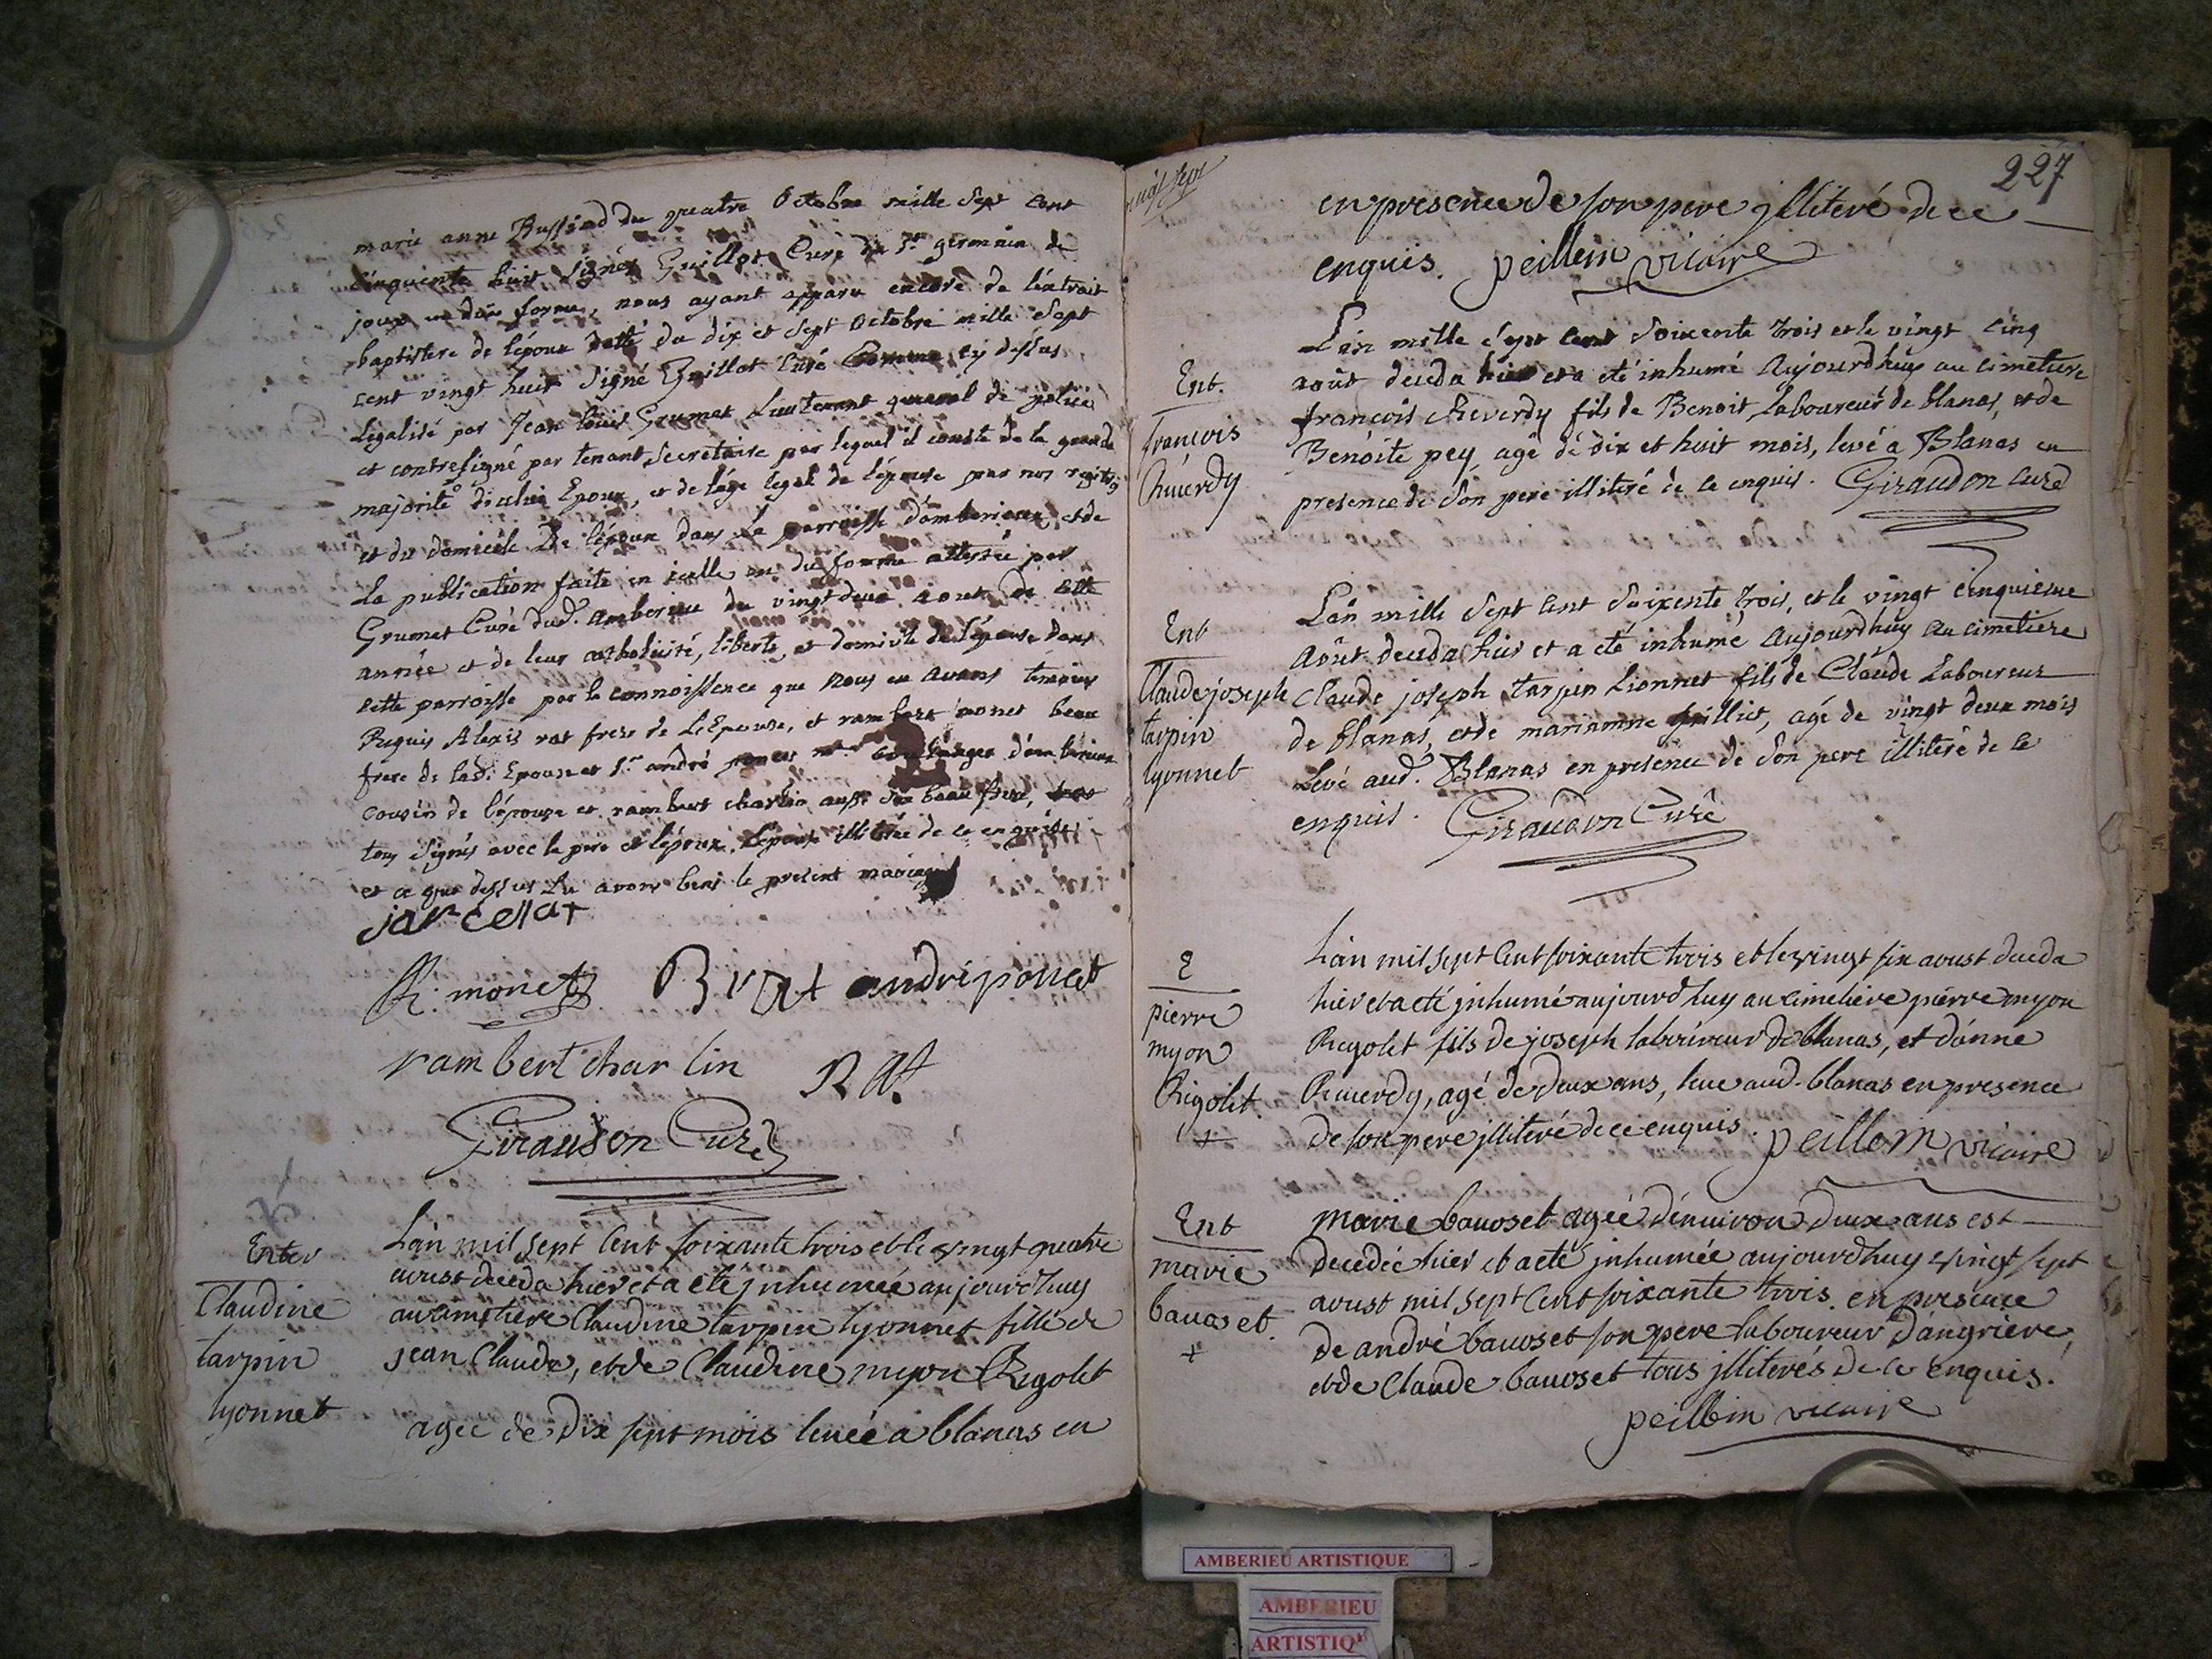 marie anne Bussiod du quatre Octobre mille Sept cent
cinquente huit Signés Guillot Curé de St germain de
joux en due forme, nous ayant apparu encore de l'extrait
baptistere de l'époux datté du dix et Sept Octobre mille Sept
cent vingt huit Signé Guillot Curé Comme cy dessus
légalisé par Jean louis Grumet Lieutenant general de police
et contresigné par tenant Secretaire par lequel il conste de la grande
majorité d'icelui Epoux, et de l'age légal de l'épouse par nos regitres
et du domicile De l'époux dans la parroisse d'amberieux et de
La publication faite en icelle en due forme attestée par
Grumet Curé dud. amberieu du vingt deux aout de cette
année et de leur catholicité, liberté, et domicile de l'épouse dans
cette parroisse par la connoissence que Nous en avons temoins
Requis Alexis rat frere de L'Epouse, et rambert monet beau
frere de lad. Epouse et Sr andré ponces boulanger d'amberieux
cousin de l'épouse et rambert charlin aussi Son beau frere,
tous Signés avec le pere et l'époux, l'épouse illitérée de ce enquise
et ce que dessus Lu avons beni le present mariage
jarcellat
R: monet B rat andré ponçet
rambert charlin Rat
Giraudon Curé
Enter
Claudine
tarpin
lyonnet
L'an mil sept Cent soixante trois et le vingt quatre
aoust deceda hier et a eté jnhumée aujourdhuy
au cimetiere Claudine tarpin lyonnet fille de
jean Claude, et de Claudine myon Rigolet
agée de dix sept mois levée a blanas en
227
en presence de son pere jlliteré de ce
enquis. peillem vicaire
Ent.
francois
Chuerdy
L'an mille sept cent Soixente trois et le vingt cinq
août deceda hier et a eté inhumé Aujourdhuy au cimetiere
françois cheverdy fils de Benoit Laboureur de blanas, et de
Benoite pey, agé de dix et huit mois, levé a Blanas en
presence de Son pere illiteré de ce enquis. Giraudon Curé
Ent
Claude joseph
tarpin
lyonnet
L'an mille Sept Cent Soixente trois, et le vingt cinquieme
Août deceda hier et a eté inhumé Aujourdhuy au cimetiere
Claude joseph tarpin Lionnet fils de Claude Laboureur
de blanas, et de mariamne grilliet, agé de vingt deux mois
Levé aud. Blanas en presence de Son pere illiteré de ce
enquis. Giraudon Curé
E
pierre
myon
Rigolet.
+
L'an mil sept Cent soixante trois et le vingt six aoust deceda
hier et a eté jnhumé aujourdhuy au cimetiere pierre myon
Rigolet fils de joseph laboureur de blanas, et d'anne
Chuerdy, agé de deux ans, levé aud. blanas en presence
de son pere jlliteré de ce enquis. peillem vicaire
Ent
marie
bauoset.
+
marie bauoset agée d'enuiron deux ans est
decedée hier et a eté jnhumée aujourdhuy vingt sept
aoust mil sept Cent soixante trois. en presence
de andré bauoset son pere laboureur d'angriere,
et de Claude bauoset tous jlliterés de ce enquis.
peillem vicaire
AMBERIEU ARTISTIQUE
AMBERIEU
ARTISTIQ